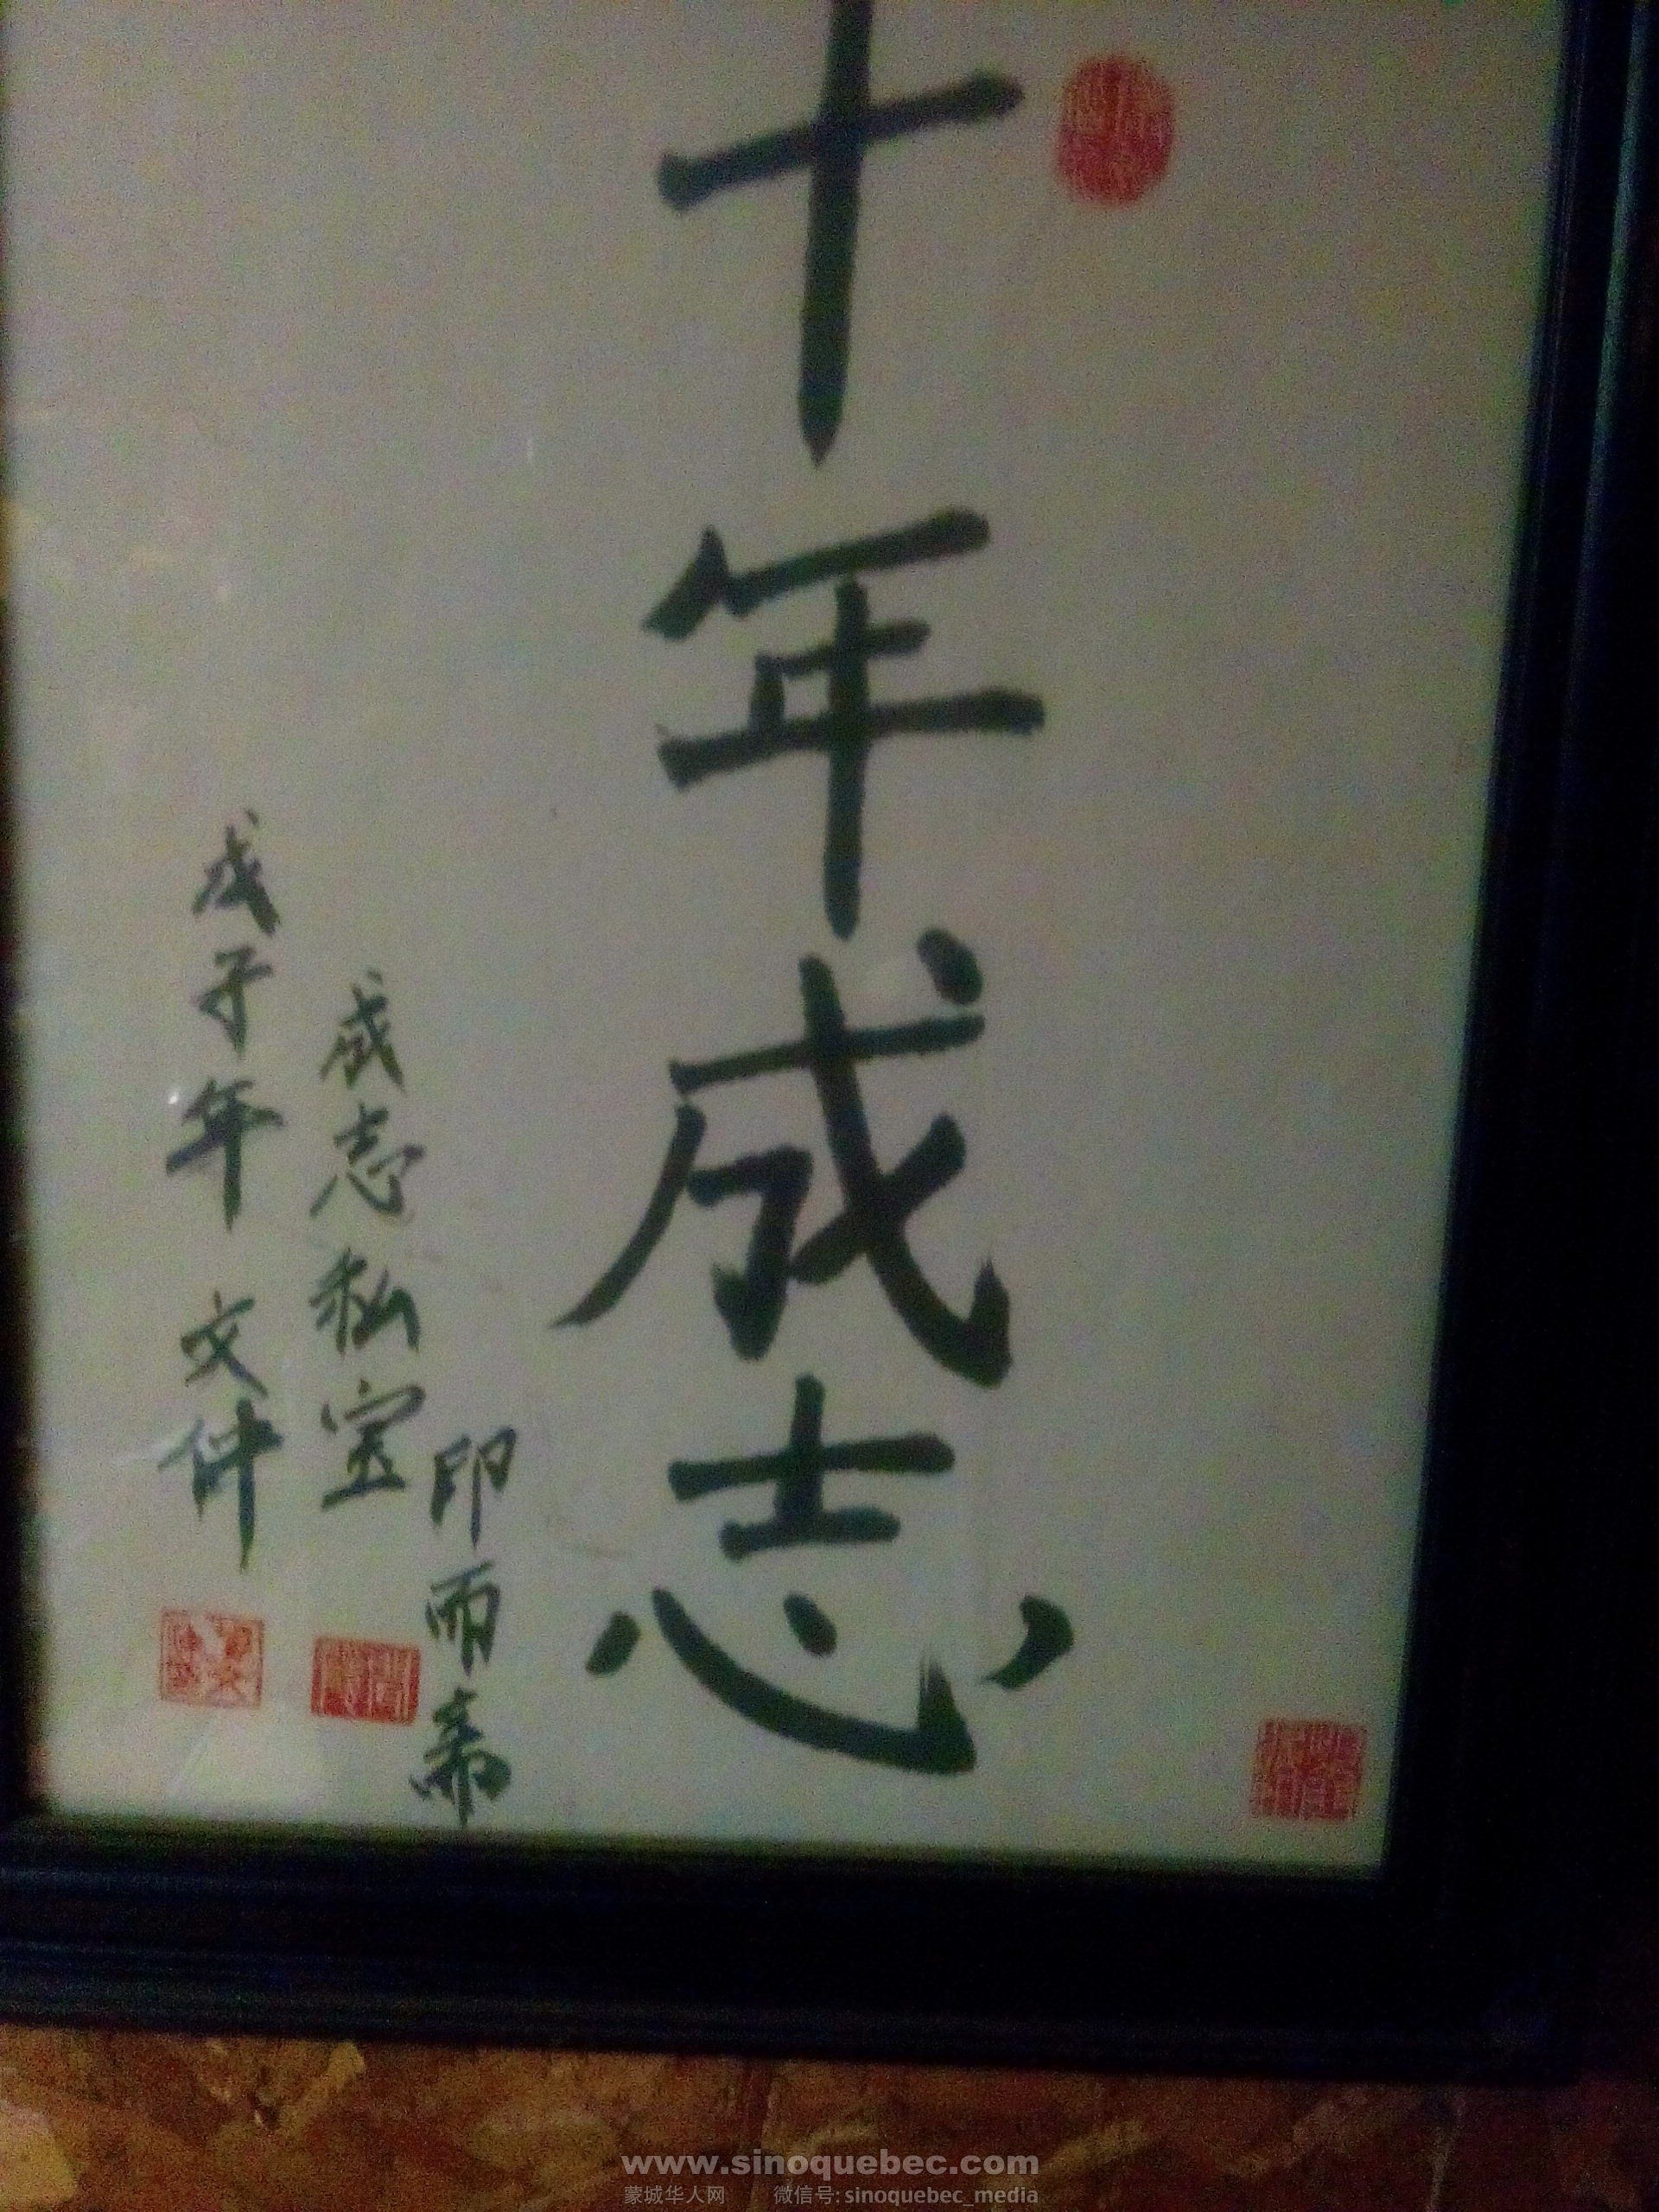 十年成志
印而希
成志私宝
戊子年 文仲
www.sinoquebec.com
蒙城华人网 微信号: sinoquebec_media